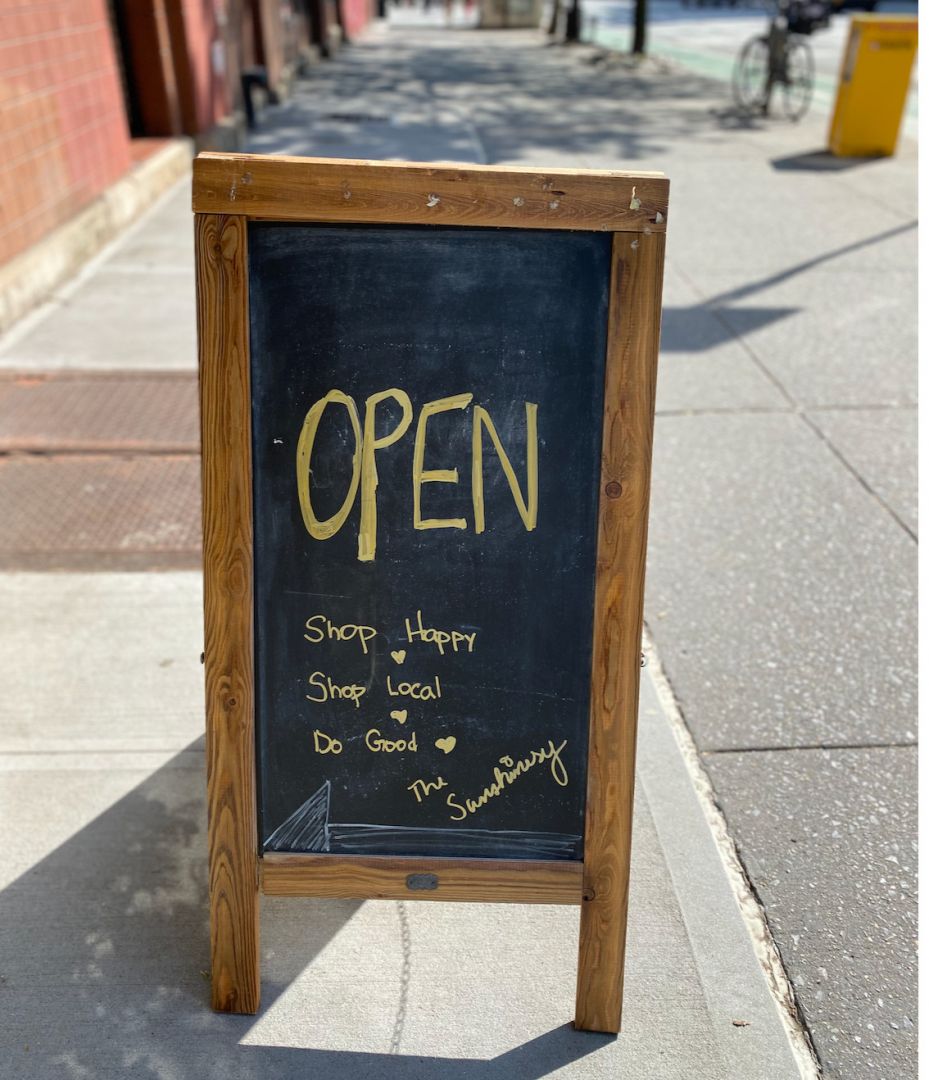 OPEN
Shop Happy
Shop Local
Do Good
The
Sunshinesy